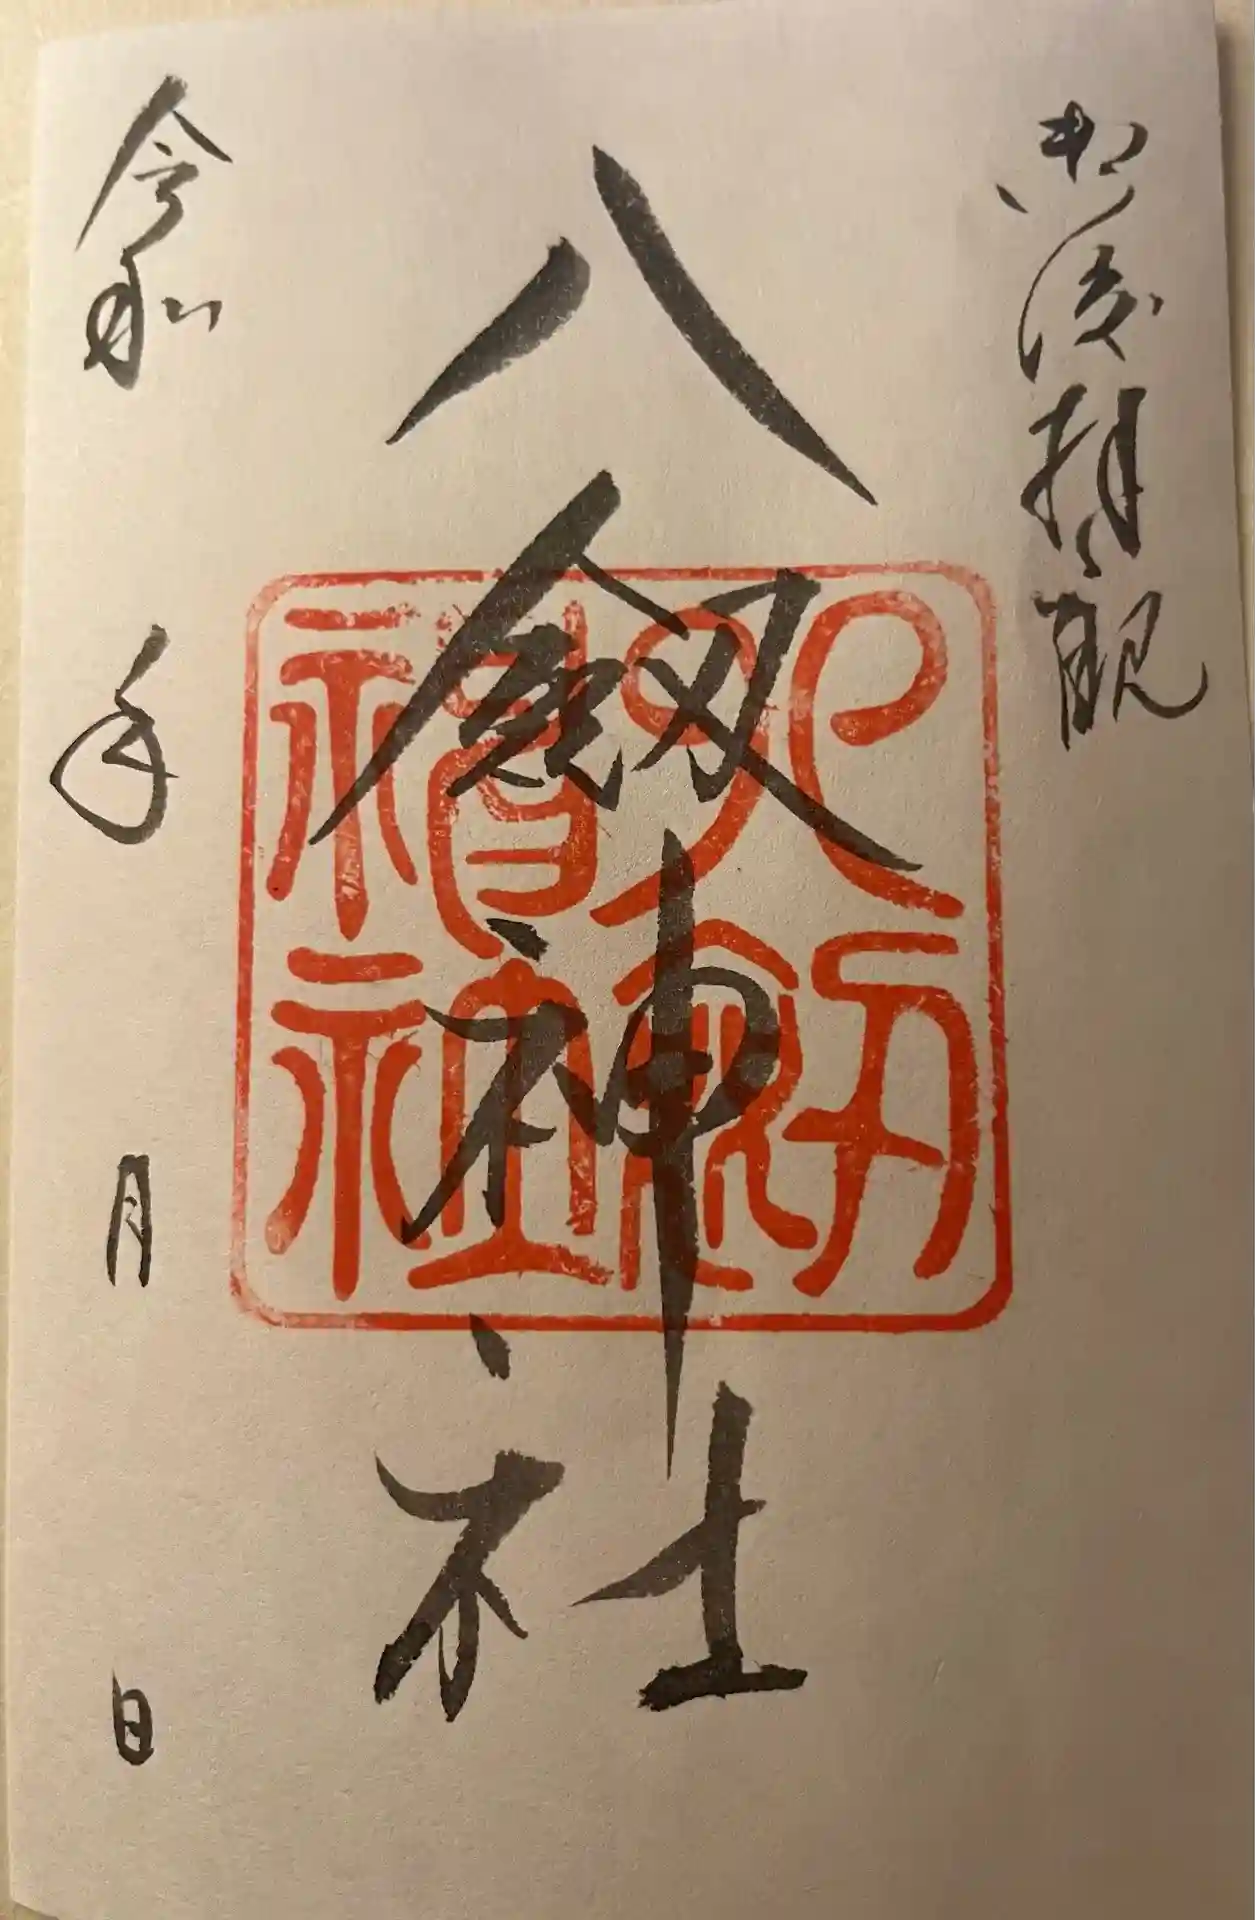 御渡拝観
八劔神社
八劔神社
令和 年 月 日